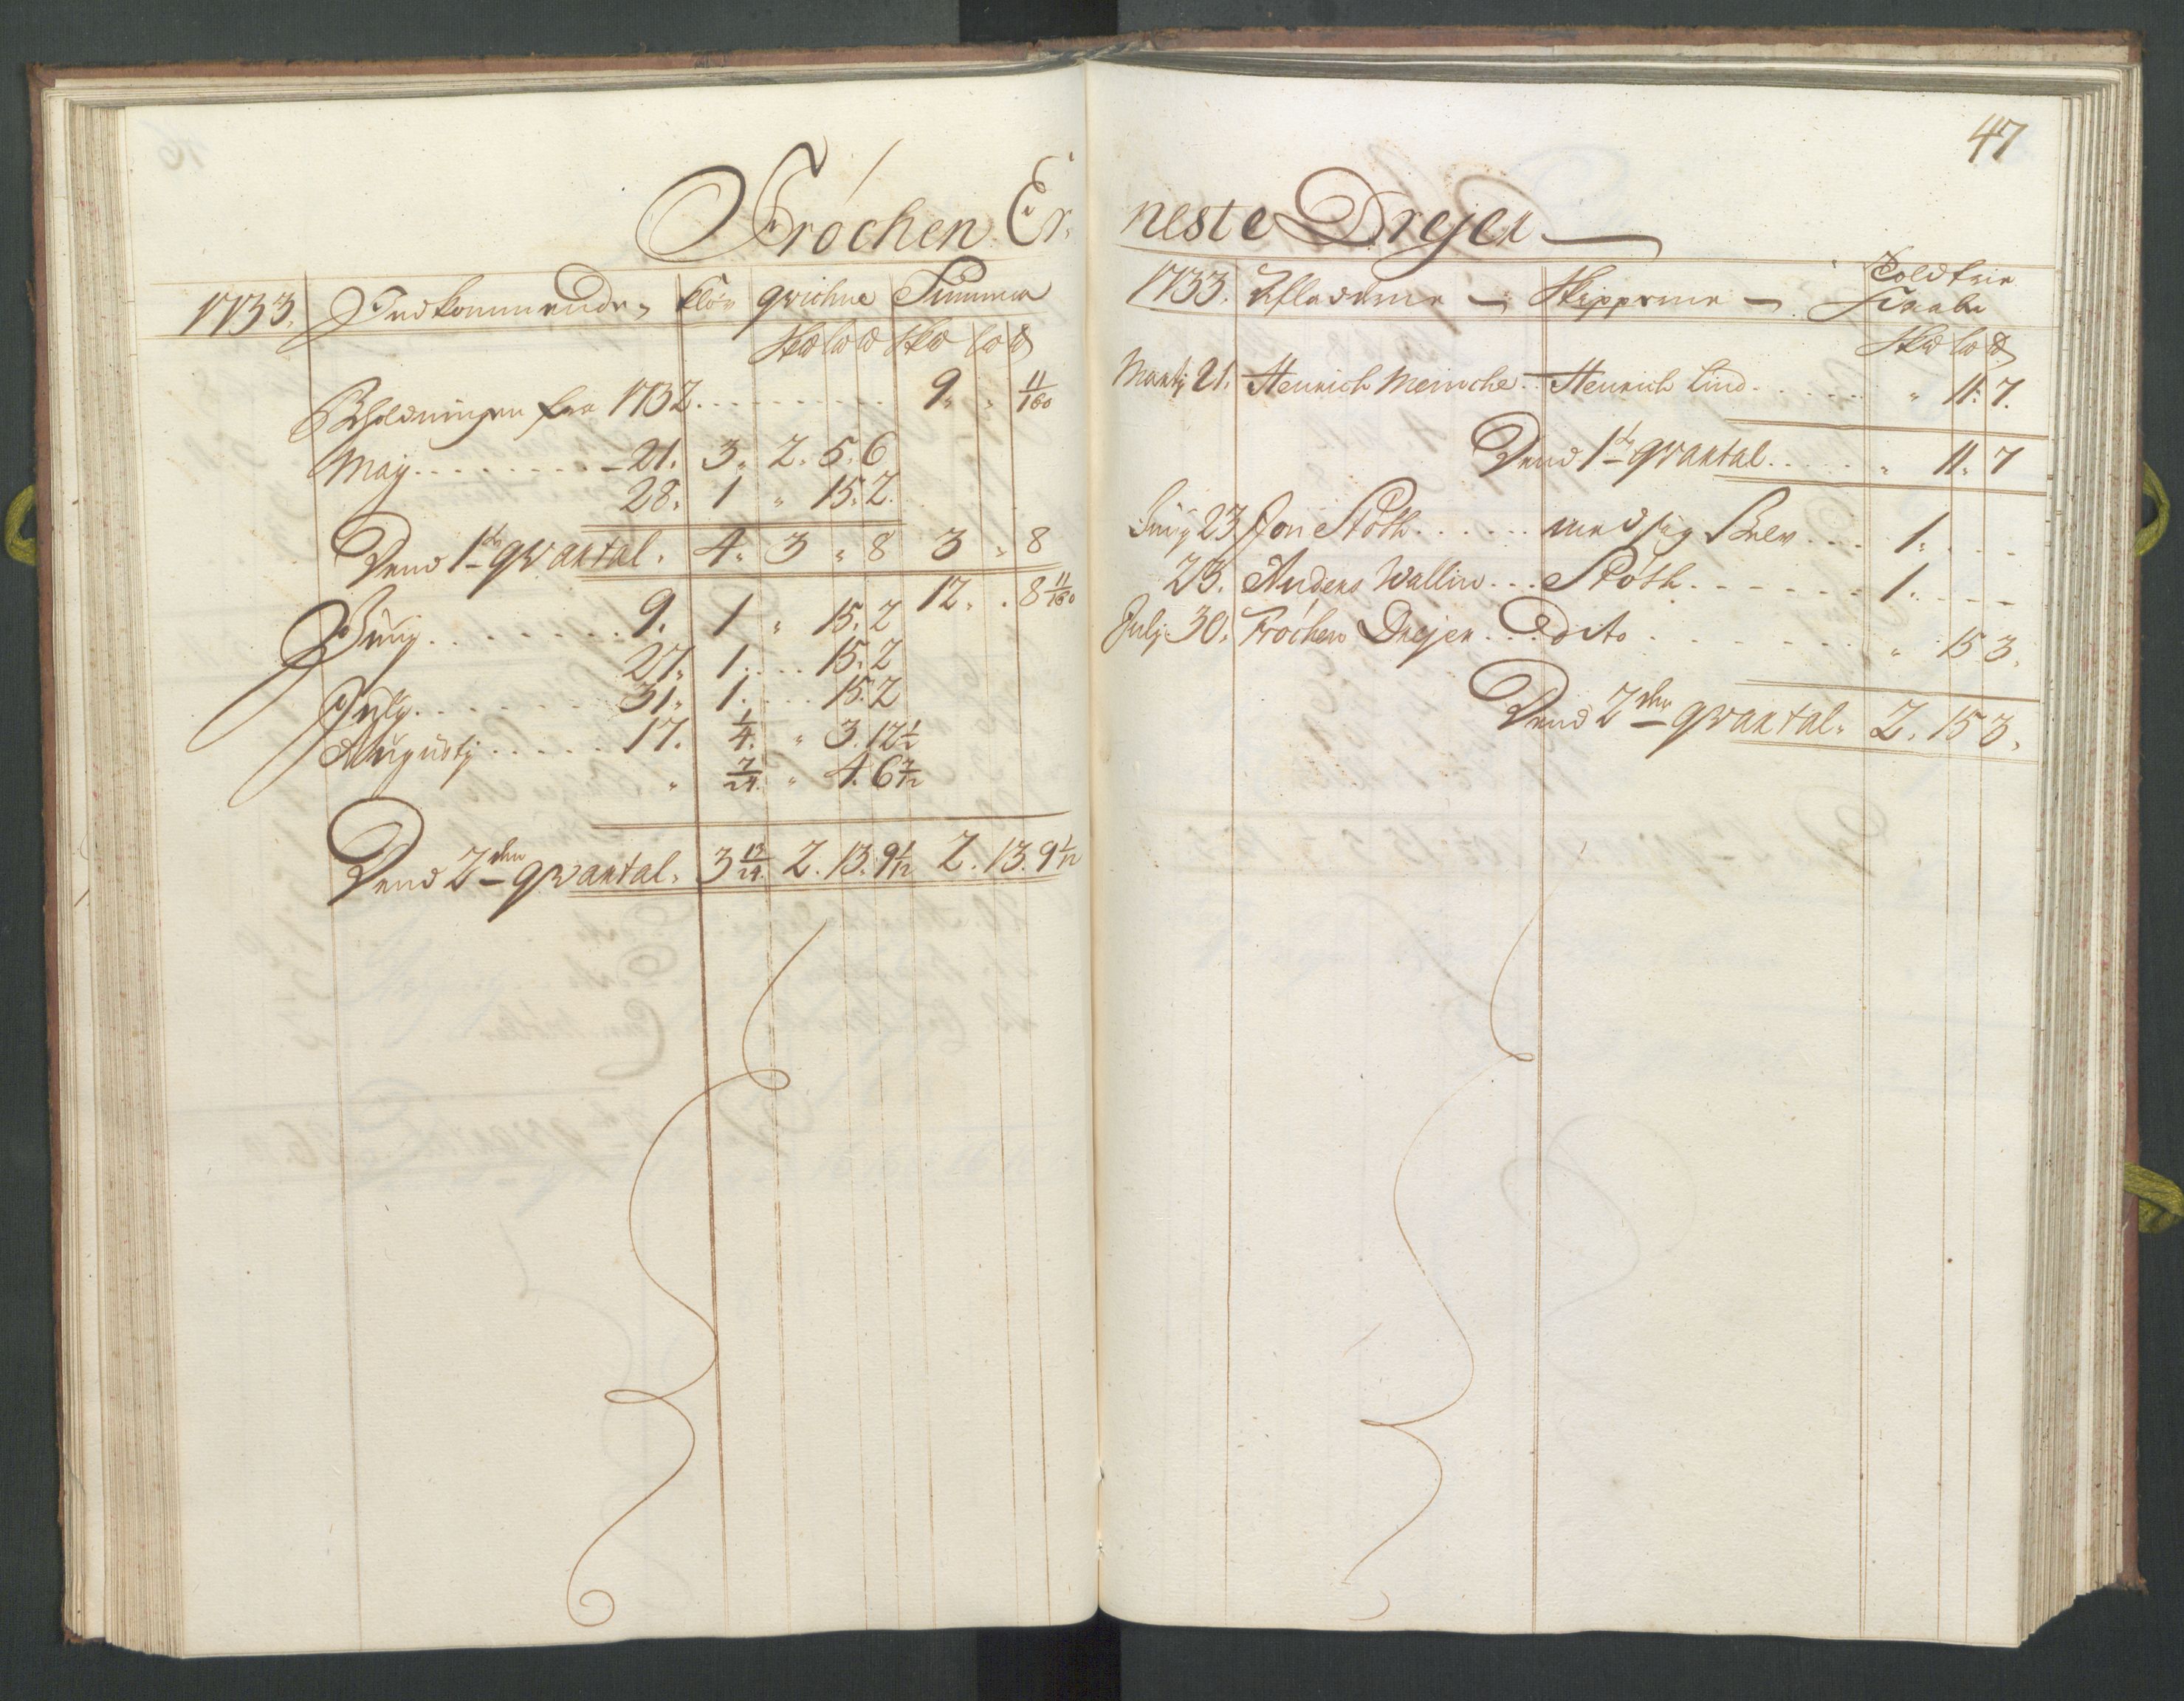 Fröchen Er
1733. Indkommende, Kløv qvichne Summa
Skd Lod Skd Lod
Beholdningen fra 1732. . . . . . . . 9. " 11/160
May. . . . . . . . - 21. 3. 2. 5. 6
28. 1 " 15. 2.
Dend 1te qvartal. 4. 3 " 8 3 " 8
12. . 8 11/160
Junij. . . . . . . . 9. 1 " 15. 2
27. 1. . . . 15. 2
July. . . . . . . . 31. 1. . . . 15. 2
Augustij . . . . . 17. 1/4. " 3. 12 1/2
" 7/24. " 4. 6 7/12
Dend 2den qvartal. 3 13/24. 2. 13. 9 1/12 2. 13. 9 1/12
47
neste Drejer
1733. Afladerne — Skipperne — Toldfrie
Skd Lod
Martij 21. Henrich Meinche . . Henrich Lind . . . . . " 11. 7.
Dend 1te qvartal. . . . . " 11. 7
Junij 23 Jon Stöth. . . . . . med sig Selv . . . 1. . . .
23. Anders Wallin . . . Stöth. . . . . . . 1. . . .
Julj. 30. Fröchen Drejer. . . Dito . . . . . . . . " 15 3.
Dend 2den qvartal. 2. 15 3.